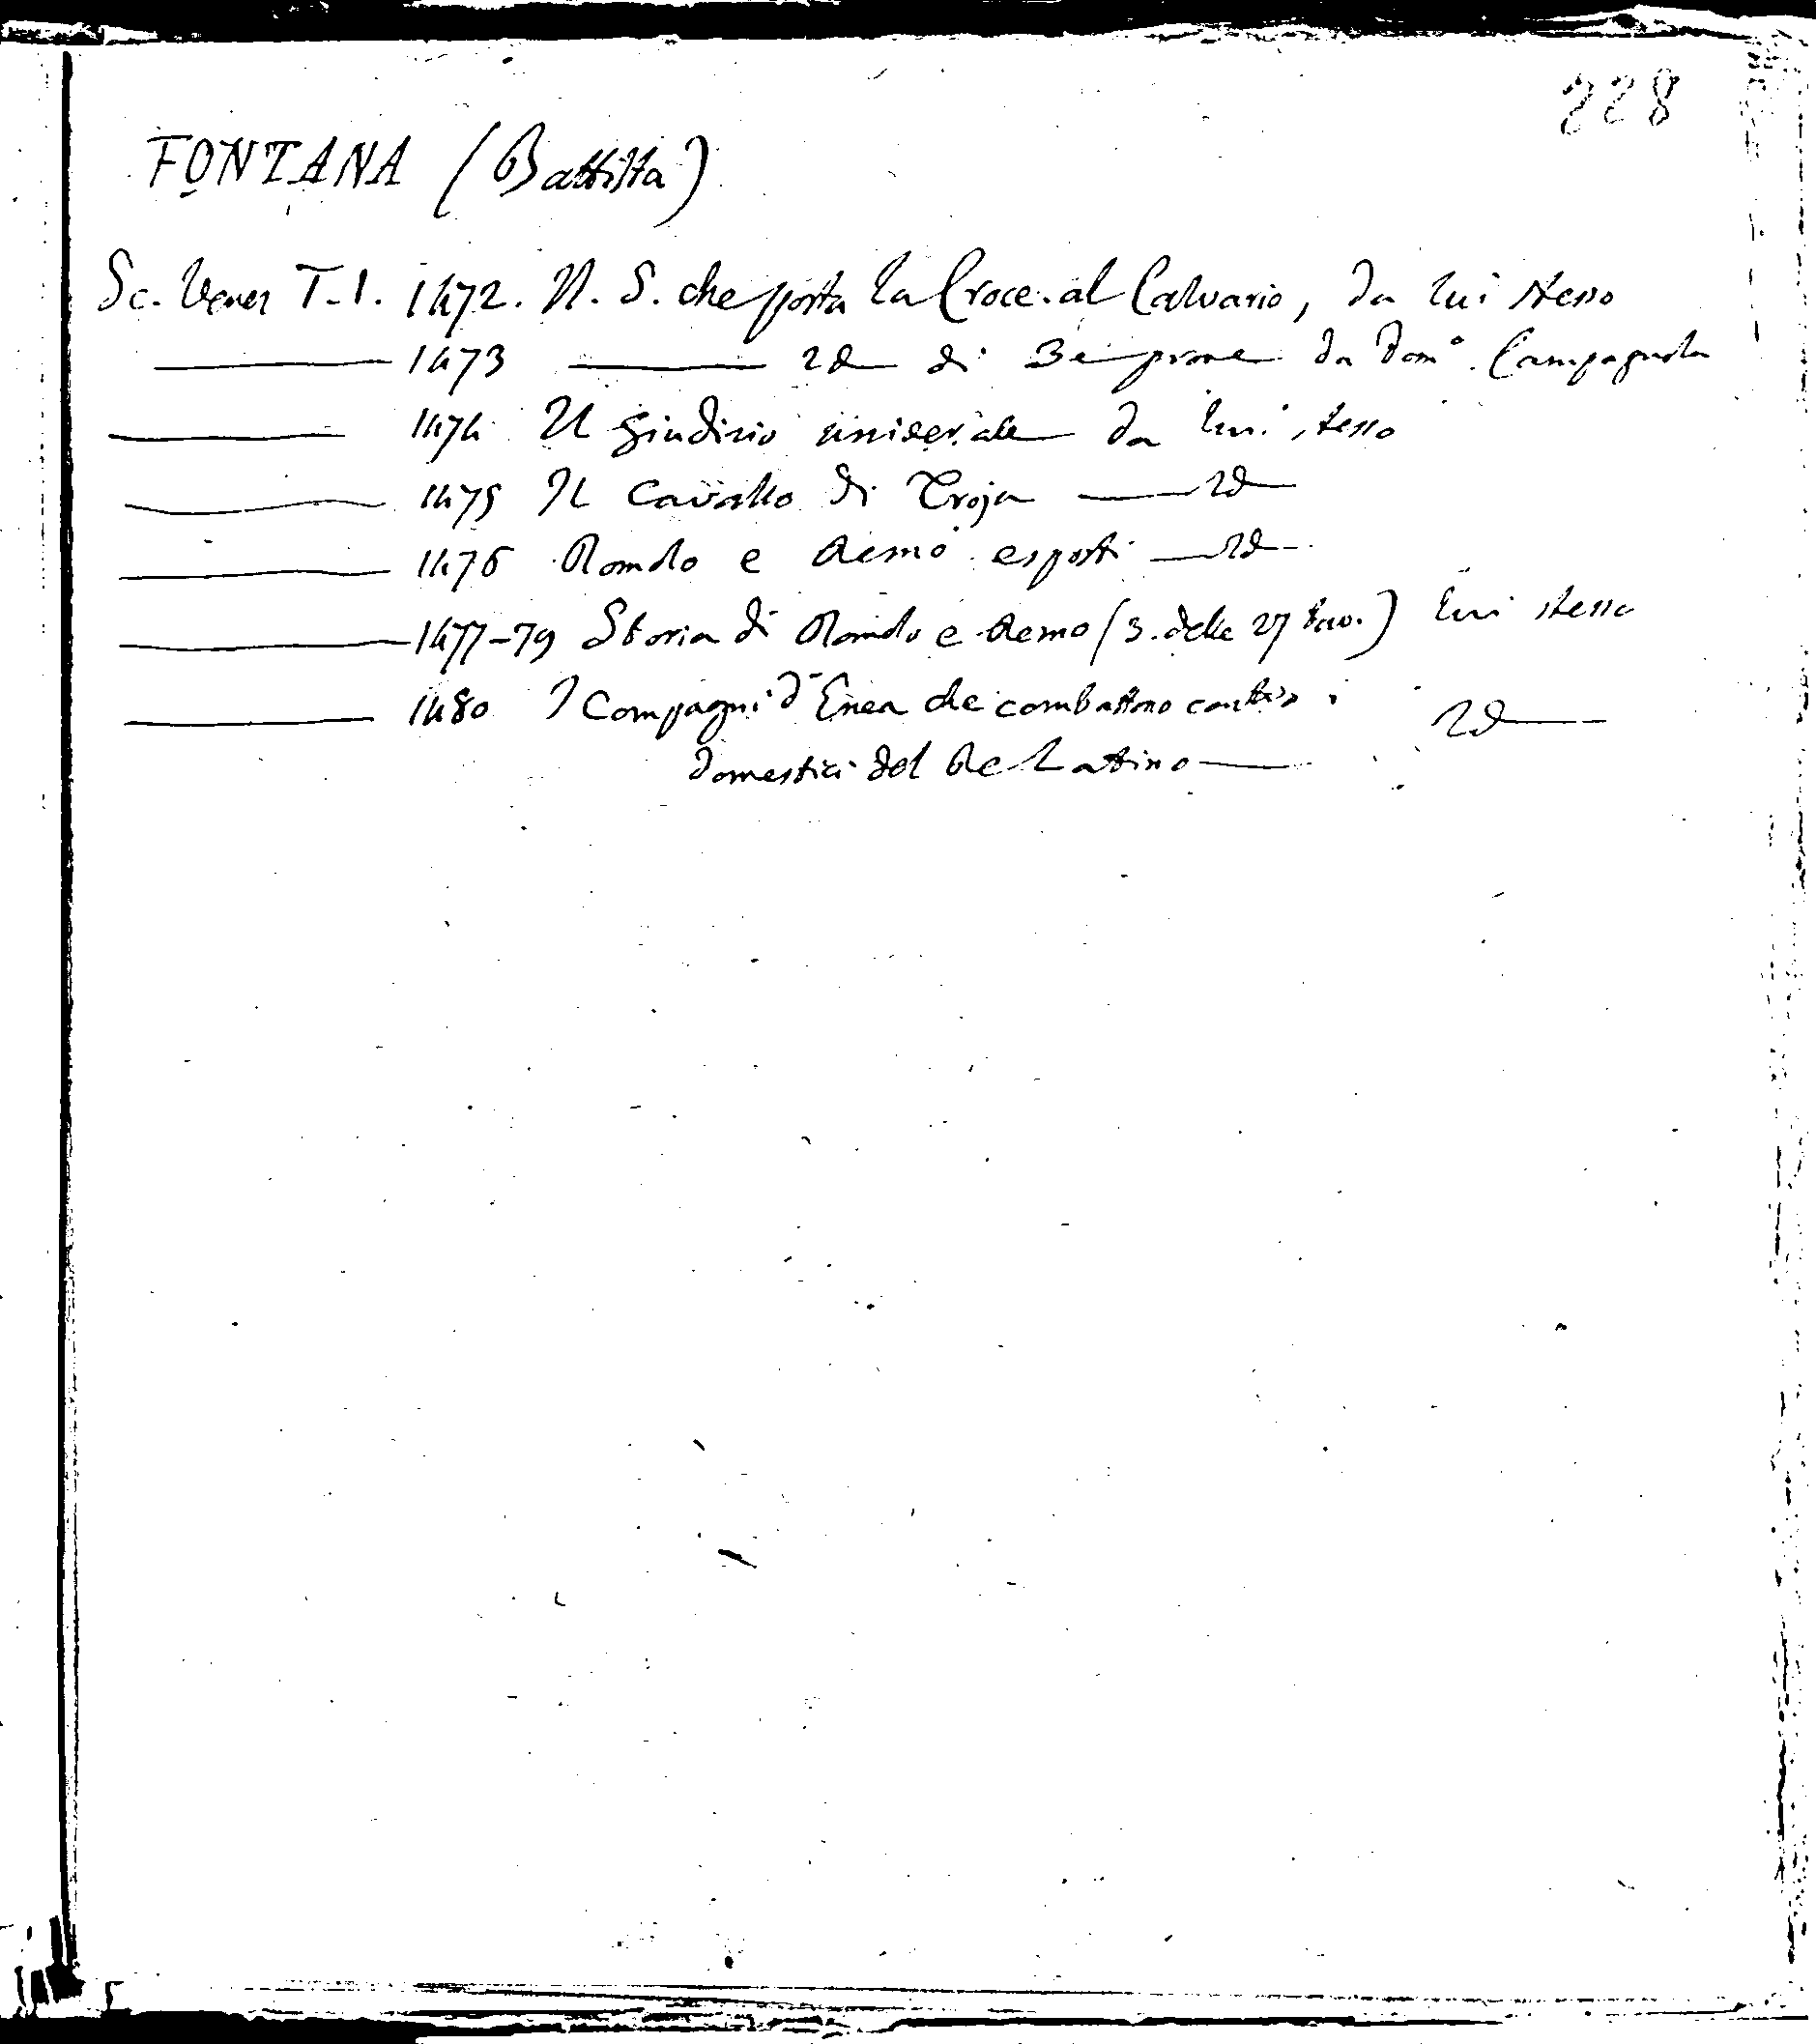 228
FONTANA (Battista)
Sc. Venez T. I. 1472. N. S. che porta la Croce al Calvario, da lui stesso
1473 Id di 3e prove da Dom°. Campagnola
1474 Il giudizio universale da lui stesso
1475 Il Cavallo di Troja Id
1476 Romolo e Remo esposti Id
1477-79 Storia di Romolo e Remo (3. delle 27 tav.) lui stesso
1480 I Compagni d'Enea che combattono contro i Id
domestici del Re Latino